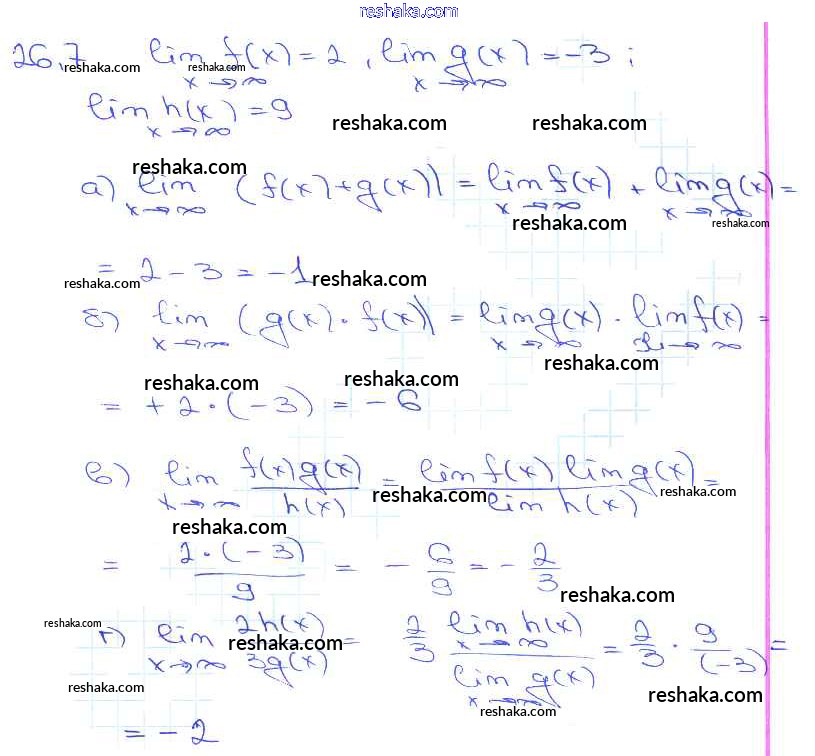 reshaka.com
26.7 lim f(x) = 2, lim g(x) = -3;
x→∞ x→∞
reshaka.com reshaka.com
lim h(x) = 9
x→∞
reshaka.com reshaka.com
reshaka.com
а) lim (f(x)+g(x)) = lim f(x) + lim g(x) =
x→∞ x→∞ x→∞
reshaka.com reshaka.com
= 2 - 3 = -1
reshaka.com reshaka.com
б) lim (g(x)·f(x)) = lim g(x) · lim f(x) =
x→∞ x→∞ x→∞
reshaka.com
reshaka.com reshaka.com
= +2·(-3) = -6
в) lim f(x)g(x)/h(x) = lim f(x) lim g(x)/lim h(x) =
x→∞
reshaka.com reshaka.com
reshaka.com
= 2·(-3)/9 = - 6/9 = - 2/3
reshaka.com
reshaka.com
г) lim 2h(x)/3g(x) = 2/3 lim h(x)/lim g(x) = 2/3 · 9/(-3) =
x→∞ x→∞ x→∞
reshaka.com
reshaka.com reshaka.com
reshaka.com
= -2